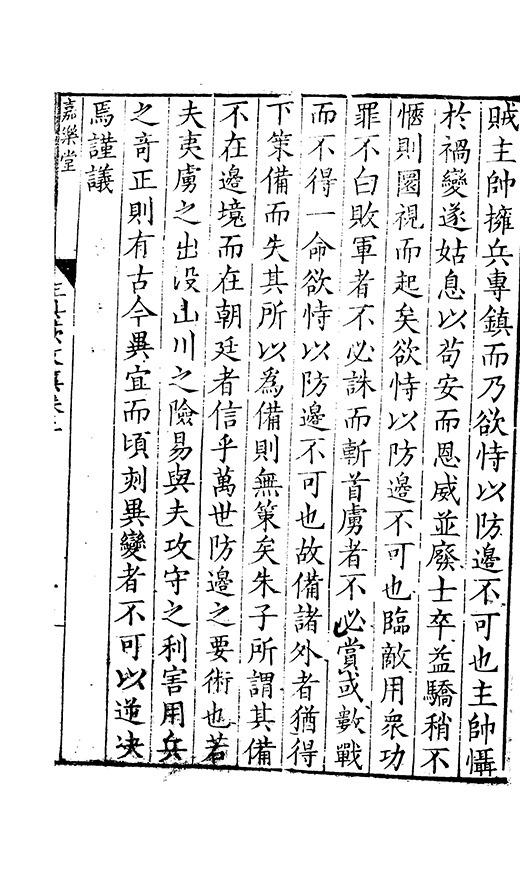 賊主帥擁兵專鎮而乃欲恃以防邊不可也主帥懾
於禍變遂姑息以苟安而恩威並廢士卒益驕稍不
愜則圜視而起矣欲恃以防邊不可也臨敵用衆功
罪不白敗軍者不必誅而斬首虜者不必賞或數戰
而不得一命欲恃以防邊不可也故備諸外者猶得
下策備而失其所以為備則無策矣朱子所謂其備
不在邊境而在朝廷者信乎萬世防邊之要術也若
夫夷虜之出没山川之險易與夫攻守之利害用兵
之竒正則有古今異宜而頃刻異變者不可以逆决
焉謹議
嘉樂堂